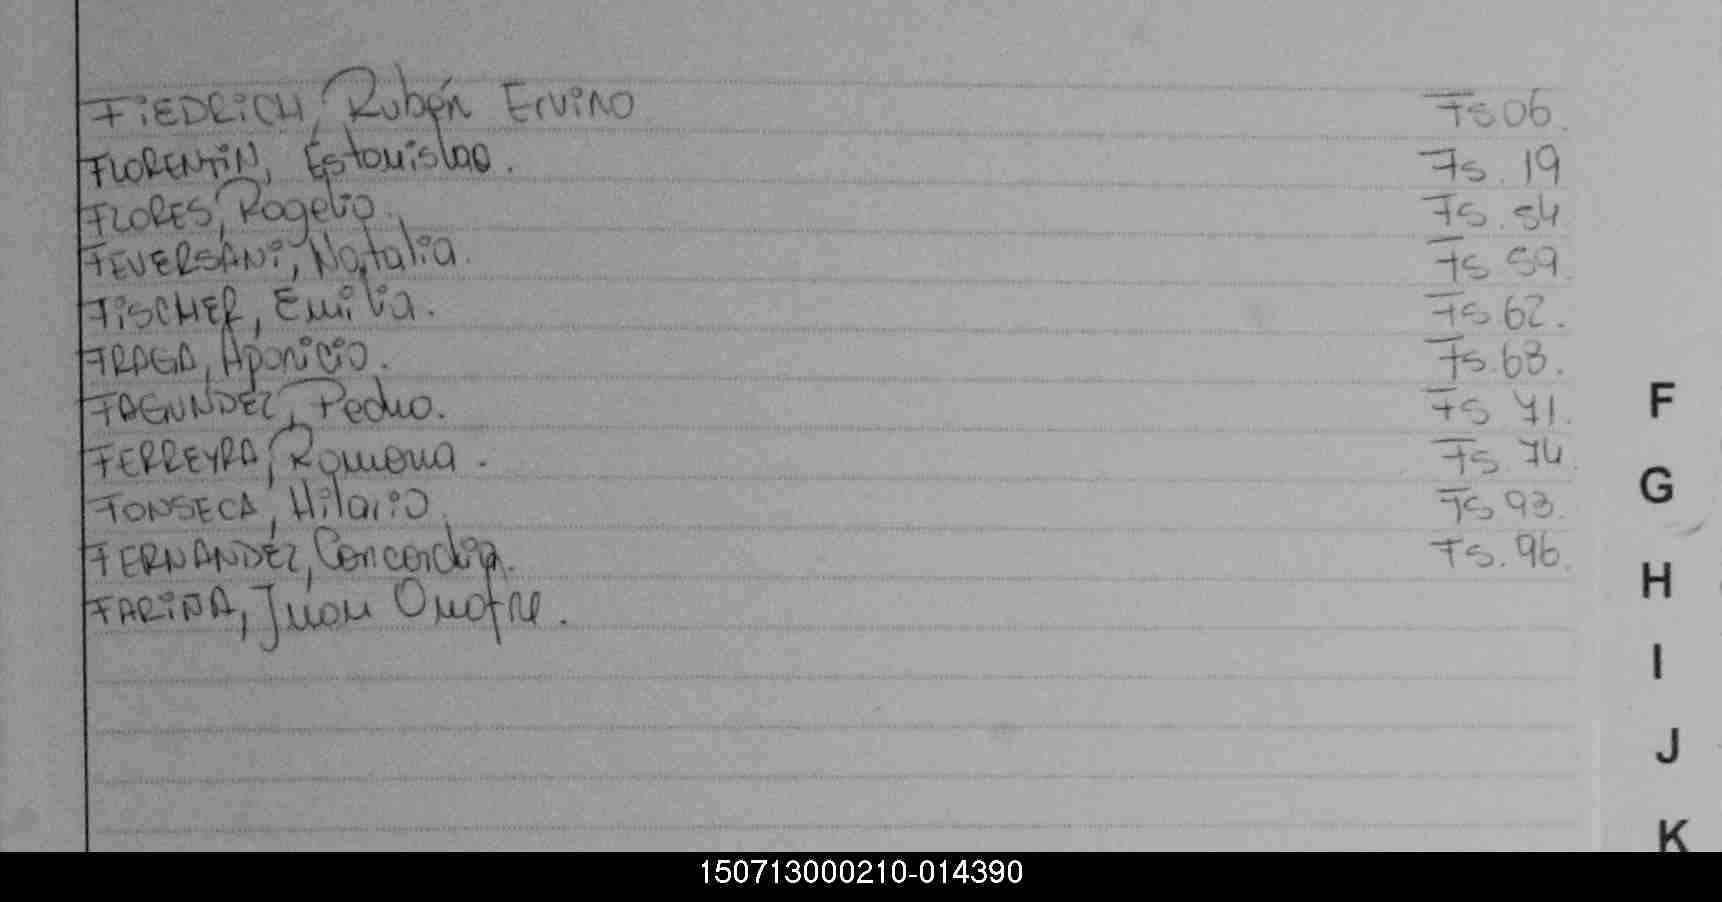 FiEDRiCH, Rubén Ervino Fs 06.
FLORENTiN, Estanislao. Fs. 19
FLORES, Rogelio. Fs. 54
FEVERSANi, Natalia. Fs 59.
FiSCHER, Emilia. Fs. 62.
FRAGA, Aparicio. Fs. 63.
FAGUNDEZ, Pedro. Fs 71.
FERREYRA, Ramona. Fs. 74.
FONSECA, Hilario. Fs 93.
FERNANDEZ, Concordia. Fs. 96.
FARiÑA, Juan Onofre.
F
G
H
I
J
K
150713000210-014390